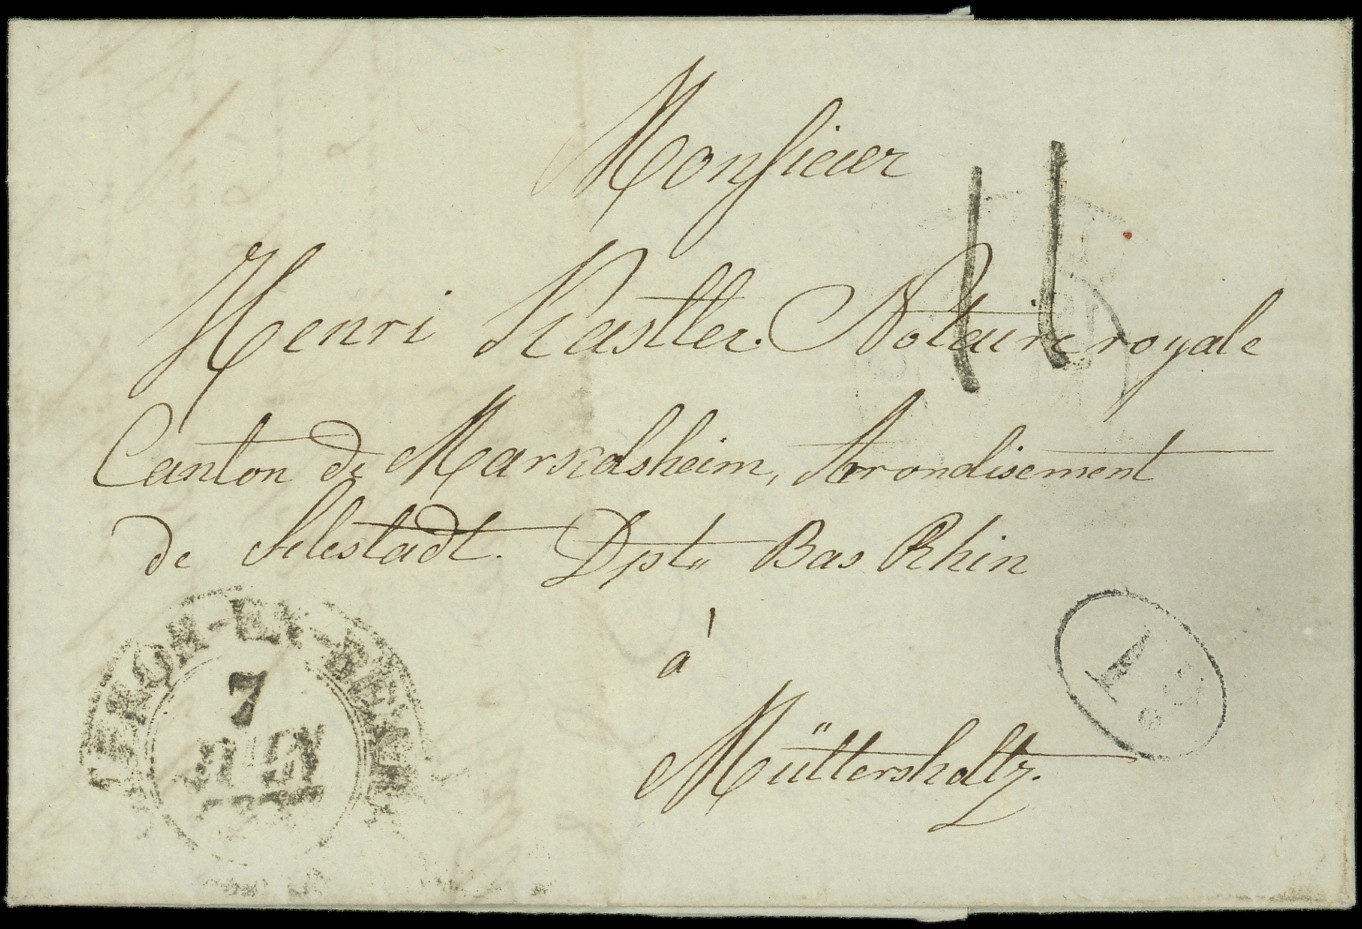 Monsieur
11
Henri Kastler. Notaire royale
Canton de Markolsheim, Arrondisement
de Schlestadt. Dpt Bas Rhin
à
Müttersholtz.
7
JUIN
1